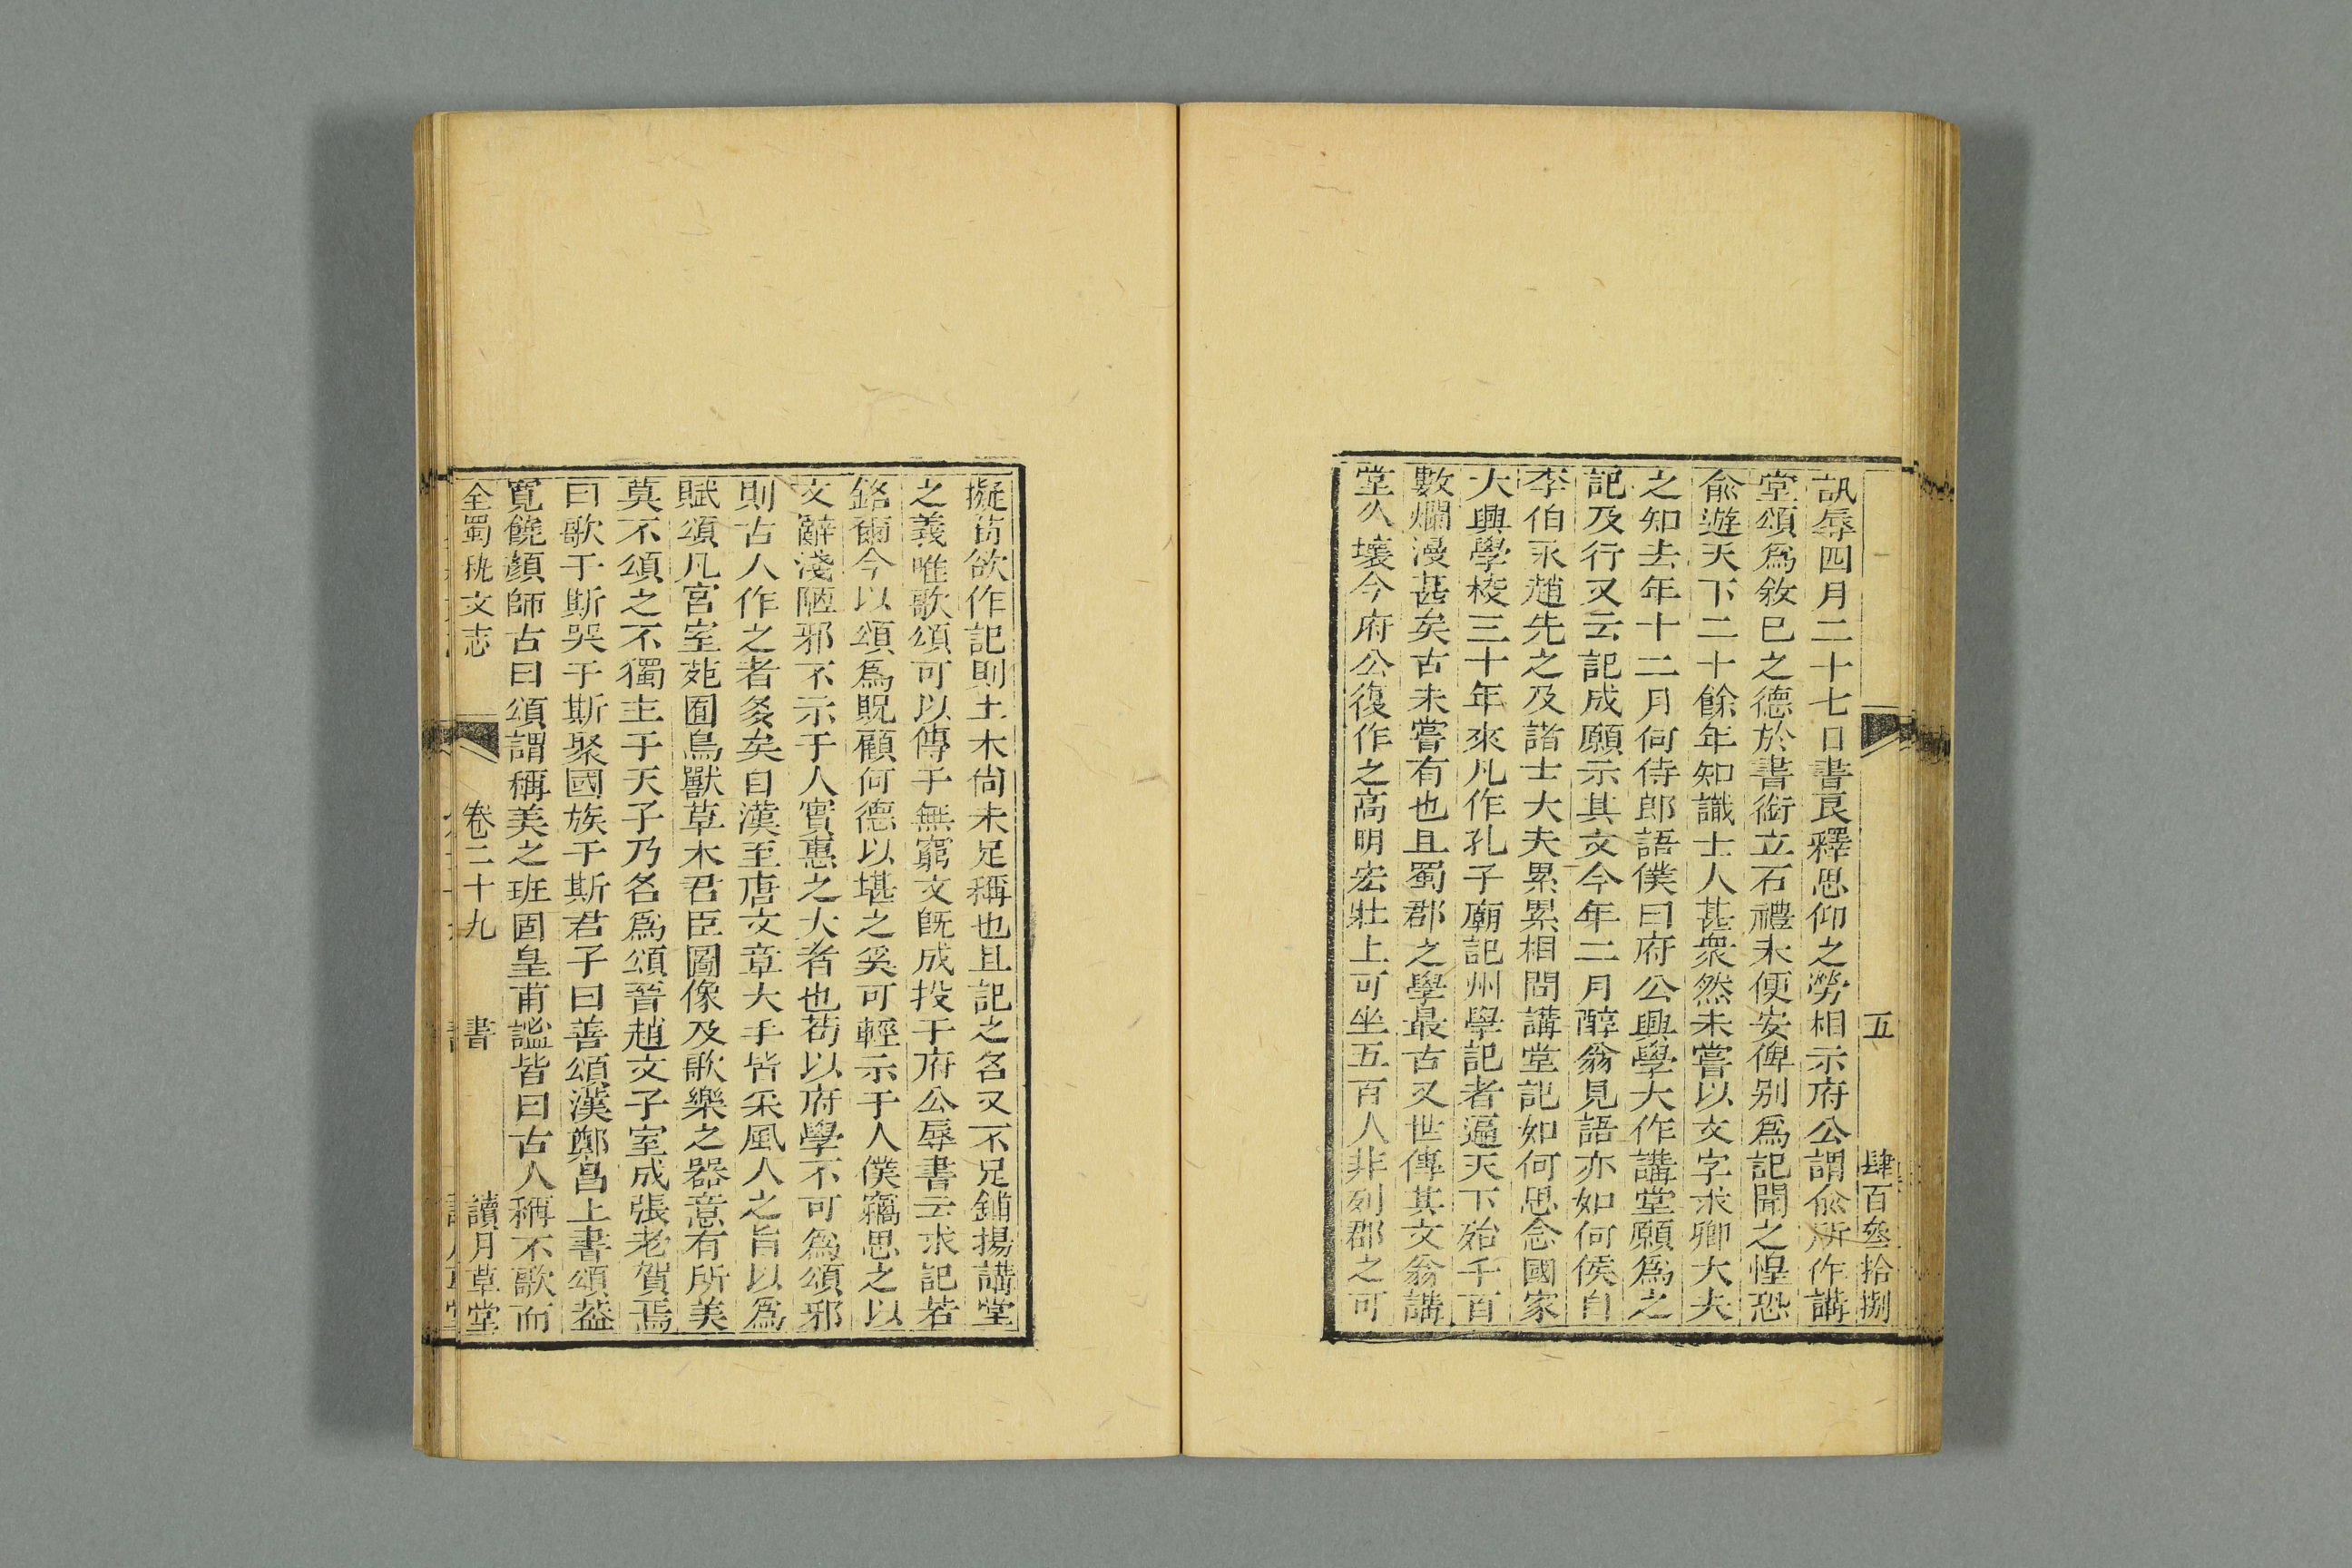 五 肆百叁拾捌
訊辱四月二十七日書良釋思仰之勞相示府公謂俞所作講
堂頌爲敘已之德於書銜立石禮未便安俾别爲記聞之惶恐
俞遊天下二十餘年知識士人甚衆然未嘗以文字求卿大夫
之知去年十二月何侍郎語僕曰府公興學大作講堂願爲之
記及行又云記成願示其文今年二月醇翁見語亦如何侯自
李伯永趙先之及諸士大夫累累相問講堂記如何思念國家
大興學校三十年來凡作孔子廟記州學記者逼天下殆千百
數爛漫甚矣古未嘗有也且蜀郡之學最古又世傳其文翁講
堂久壞今府公復作之高明宏壯上可坐五百人非列郡之可
擬苟欲作記則土木尚未足稱也且記之名又不足鋪揚講堂
之義唯歌頌可以傳于無窮文旣成投于府公辱書云求記若
銘爾今以頌爲貺顧何德以堪之奚可輕示于人僕竊思之以
文辭淺陋邪不示于人實惠之大者也苟以府學不可爲頌邪
則古人作之者多矣自漢至唐文章大手皆采風人之旨以爲
賦頌凡宮室苑囿鳥獸草木君臣圖像及歌樂之器意有所美
莫不頌之不獨主于天子乃名爲頌晉趙文子室成張老賀焉
曰歌于斯哭于斯聚國族于斯君子曰善頌漢鄭昌上書頌葢
寛饒顏師古曰頌謂稱美之班固皇甫謐皆曰古人稱不歌而
全蜀秇文志 卷二十九 書 讀月草堂